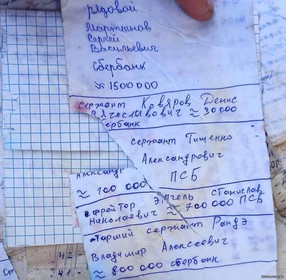 рядовой
Мартынов
Сергей
Васильевич
сбербанк
≈ 1500000
сержант Ковяров Денис
Вячеславович ≈ 30000
сбербанк
сержант Тищенко
Александр
Александрович
ПСБ
≈ 100 000
Ефрейтор Энгель Станислав
Николаевич ≈ 700000 ПСБ
Старший сержант Рандэ
Владимир Алексеевич
≈ 800 000 сбербанк